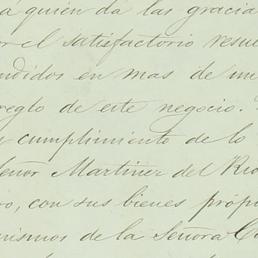 a quién da las gracia
or el satisfactorio resu
endidos en mas de un
reglo de este negocio.
cumplimiento de lo
eñor Martinez del Rio
o, con sus bienes própi
nismos de la Señora